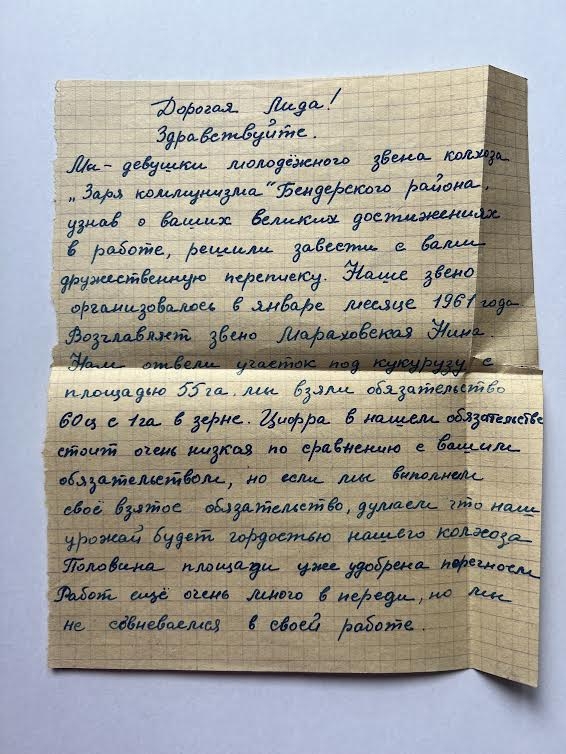 Дорогая Лида!
Здравствуйте.
Мы - девушки молодёжного звена колхоза
„Заря коммунизма" Бендерского района,
узнав о ваших великих достижениях
в работе, решили завести с вами
дружественную переписку. Наше звено
организовалось в январе месяце 1961 года
Возглавляет звено Мараховская Нина.
Нам отвели участок под кукурузу с
площадью 55 га. мы взяли обязательство
60 ц с 1 га в зерне. Цифра в нашем обязательстве
стоит очень низкая по сравнению с вашим
обязательством, но если мы выполнем
своё взятое обязательство, думаем что наш
урожай будет гордостью нашего колхоза
Половина площади уже удобрена перегноем
Работ ещё очень много в переди, но мы
не совневаемся в своей работе.